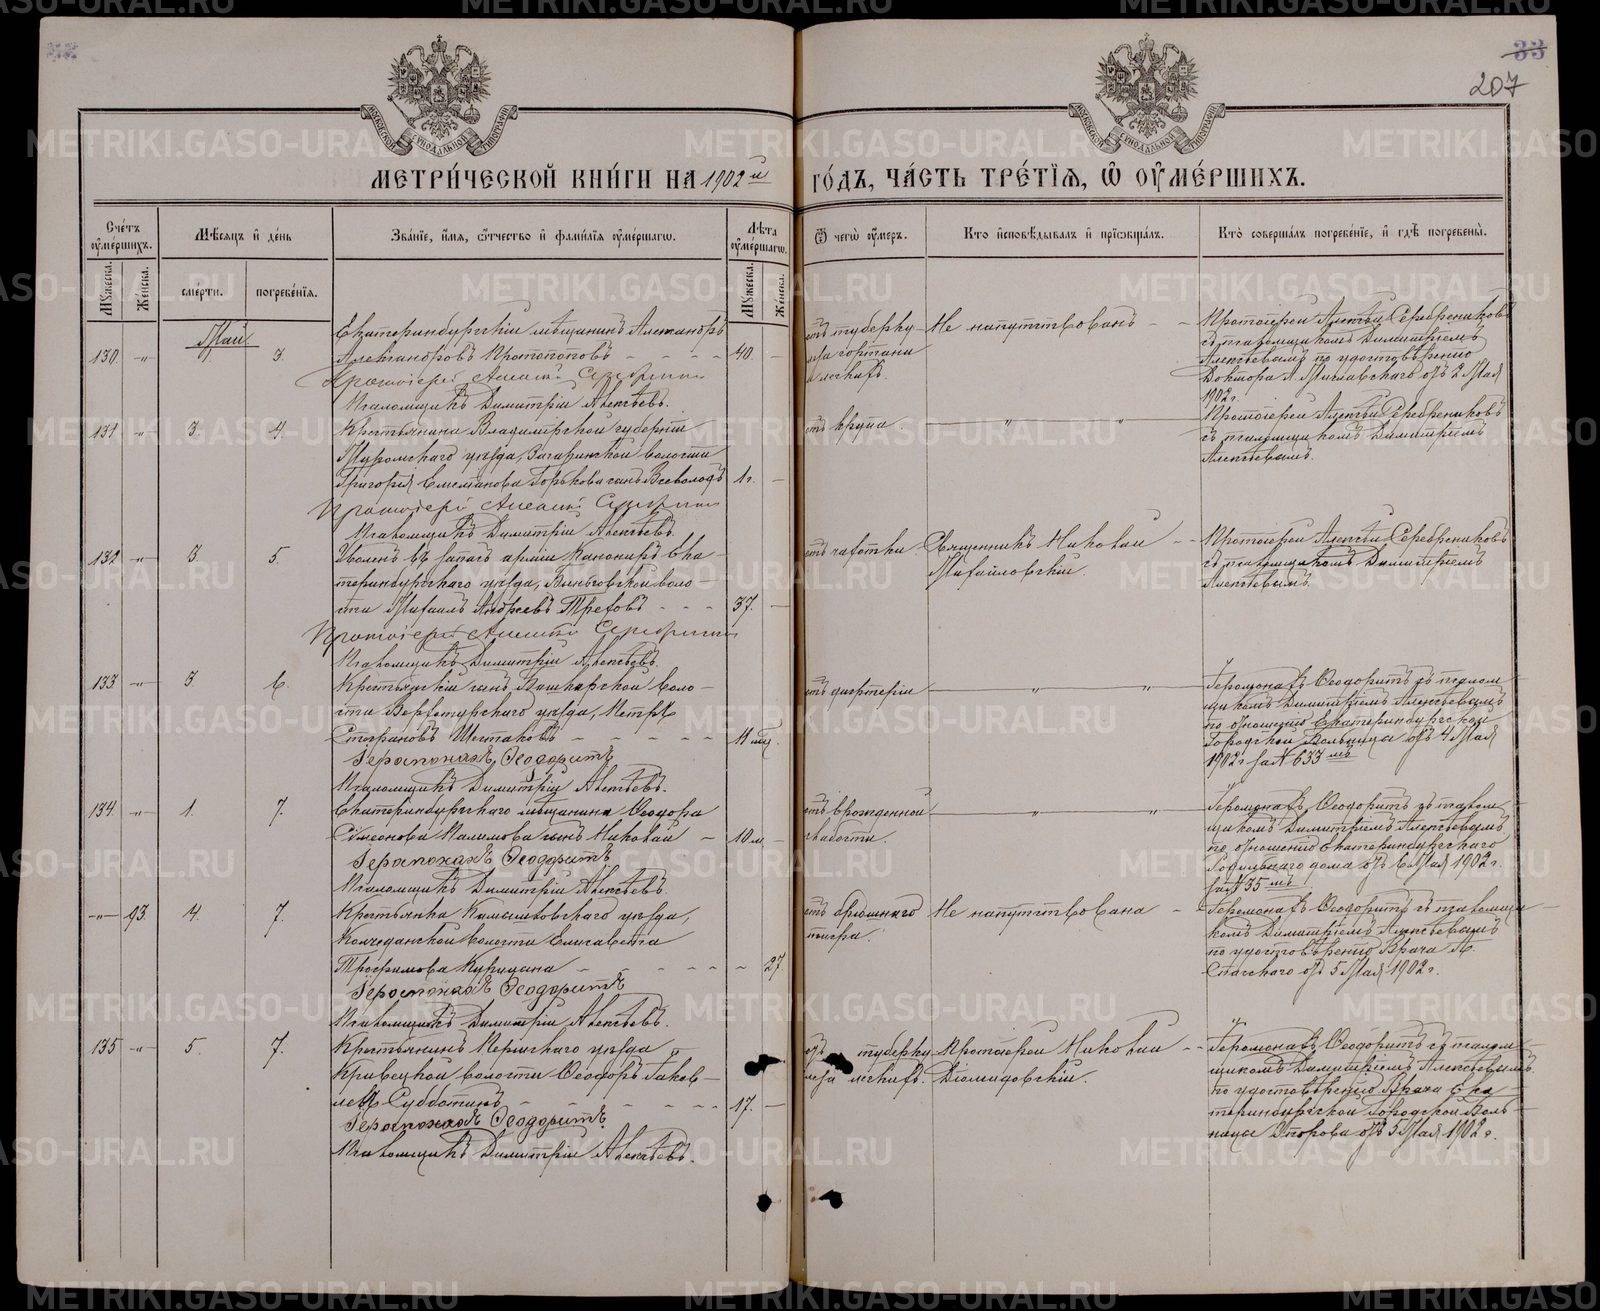 33
207
МОСКОВСКОЙ СУНОДАЛЬНОЙ ТИПОГРАФІИ
МОСКОВСКОЙ СУНОДАЛЬНОЙ ТИПОГРАФІИ
МЕТРИ́ЧЕСКОЙ КНИ́ГИ НА 1902й ГО́ДЪ, ЧА́СТЬ ТРЕ́ТІѦ, Ѡ ОУМЕ́РШИХЪ.
Сче́тъ оуме́ршихъ.
Мѣ́сѧцъ и҆ де́нь
Зва́нїе, и҆́мѧ, ѻ҆́тчество и҆ фами́лїѧ оуме́ршагѡ.
Лѣ́та оуме́ршагѡ.
Ѿ чегѡ̀ оу́меръ.
Кто̀ и҆сповѣ́дывалъ и҆ прїѡбща́лъ.
Кто̀ соверша́лъ погребе́нїе, и҆ гдѣ̀ погребены̀.
Мꙋ́жеска.
Же́нска.
сме́рти.
погребе́нїѧ.
Мꙋ́жеска.
Же́нска.
Май
130. -"- 3.
Екатеринбургскій мѣщанинъ Александръ
Александровъ Протопоповъ 40.
Протоіерей
Псаломщикъ Димитрій Алексѣевъ.
отъ туберку-
леза гортани
и легкихъ.
Не напутствованъ
Протоіерей Алексѣй Серебрениковъ
съ псаломщикомъ Димитріемъ
Алексѣевымъ по удостовѣренію
Доктора А. отъ 2 Мая
1902 г.
131 -"- 3. 4.
Крестьянина Владимірской губерніи
Муромскаго уѣзда, волости
Григорія Горькова сынъ Всеволодъ 1 г.
Протоіерей
Псаломщикъ Димитрій Алексѣевъ.
отъ крупа. " "
Протоіерей Алексѣй Серебрениковъ
съ псаломщикомъ Димитріемъ
Алексѣевымъ.
132 -"- 3. 5.
Уволенъ въ запасъ арміи Канониръ Ека-
теринбургскаго уѣзда, воло-
сти Михаилъ Андреевъ Треховъ 37.
Протоіерей
Псаломщикъ Димитрій Алексѣевъ.
отъ чахотки
Священникъ Николай
Михайловскій.
Протоіерей Алексѣй Серебрениковъ
съ псаломщикомъ Димитріемъ
Алексѣевымъ.
133 -"- 3 6.
Крестьянскій сынъ Башкарской воло-
сти Верхотурскаго уѣзда, Петръ
Стефановъ Шестаковъ 11 мѣс.
Іеромонахъ Ѳеодоритъ
Псаломщикъ Димитрій Алексѣевъ.
отъ дифтеріи " "
Іеромонахъ Ѳеодоритъ съ псалом-
щикомъ Димитріемъ Алексѣевымъ
по отношенію Екатеринбургской
Городской Больницы отъ 4 Мая
1902 г за № 633мъ
134. -"- 1. 7.
Екатеринбургскаго мѣщанина Ѳеодора
Сѵмеонова сынъ Николай 10 м.
Іеромонахъ Ѳеодоритъ
Псаломщикъ Димитрій Алексѣевъ.
отъ врожденной
слабости. " "
Іеромонахъ Ѳеодоритъ съ псалом-
щикомъ Димитріемъ Алексѣевымъ
по отношенію Екатеринбургскаго
Родильнаго дома отъ 6 Мая 1902 г.
за № 35мъ
-"- 93. 4. 7.
Крестьянка Камышловскаго уѣзда,
Колчеданской волости Елисавета
Трофимова Курицына 27
Іеромонахъ Ѳеодоритъ
Псаломщикъ Димитрій Алексѣевъ.
отъ брюшнаго
тифа.
Не напутствована
Іеромонахъ Ѳеодоритъ съ псаломщи-
комъ Димитріемъ Алексѣевымъ
по удостовѣренію Врача А.
Спасскаго отъ 5 Мая 1902 г.
135 -"- 5. 7.
Крестьянинъ Пермскаго уѣзда
волости Ѳеодоръ Іаков-
левъ Субботинъ 17.
Іеромонахъ Ѳеодоритъ
Псаломщикъ Димитрій Алексѣевъ.
отъ туберку-
леза легкихъ.
Протоіерей Николай
Діомидовскій.
Іеромонахъ Ѳеодоритъ съ псалом-
щикомъ Димитріемъ Алексѣевымъ
по удостовѣренію Врача Ека-
теринбургской Городской Боль-
ницы отъ 5 Мая 1902 г.
METRIKI.GASO-URAL.RU